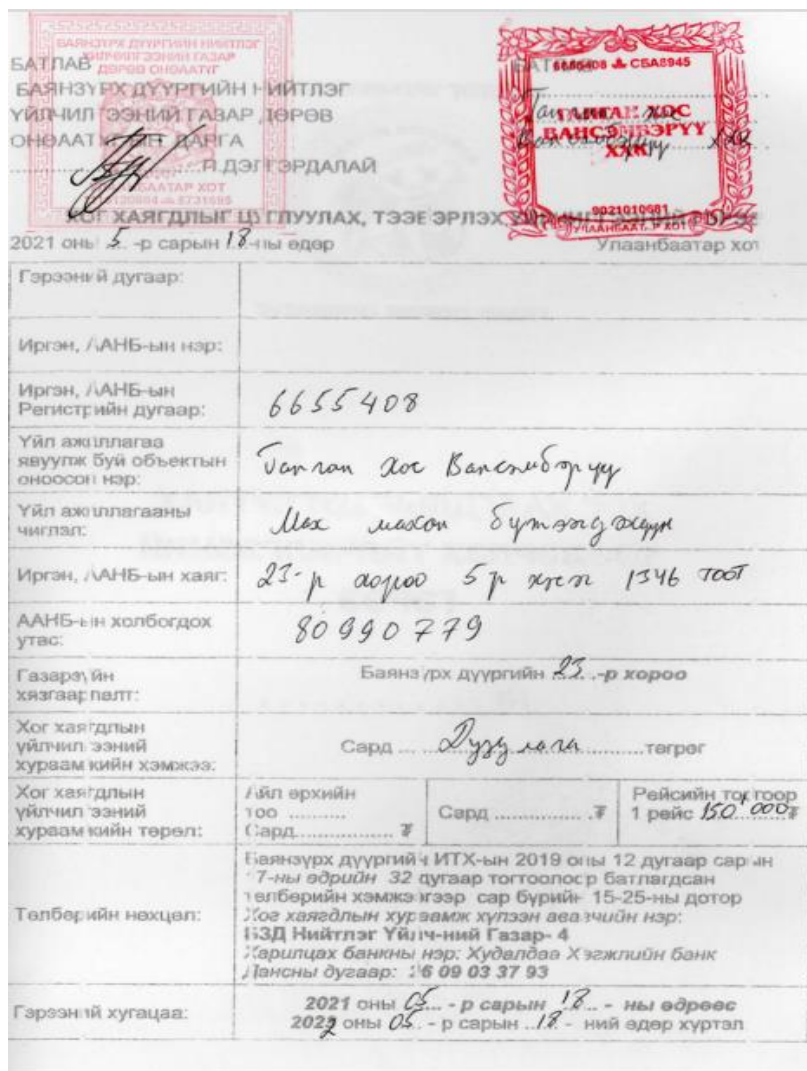 БАТЛАВ
БАЯНЗҮРХ ДҮҮРГИЙН НИЙТЛЭГ
ҮЙЛЧИЛГЭЭНИЙ ГАЗАР ДӨРӨВ
ОНӨААТҮГИЙН ДАРГА
П.ДЭЛГЭРДАЛАЙ
6655408 СБА8945
ХОС
ВАНСЭМБЭРҮҮ
ХХК
9021010681
УЛААНБААТАР ХОТ
ХОГ ХАЯГДЛЫГ ЦУГЛУУЛАХ, ТЭЭВЭРЛЭХ
2021 оны 5 -р сарын 18-ны өдөр Улаанбаатар хот
Гэрээний дугаар:
Иргэн, ААНБ-ын нэр:
Иргэн, ААНБ-ын
Регистрийн дугаар: 6655408
Үйл ажиллагаа
явуулж буй объектын
оноосон нэр: Хос Вансэмбэрүү
Үйл ажиллагааны
чиглэл: Мах махан бүтээгдэхүүн
Иргэн, ААНБ-ын хаяг: 23-р хороо 5р хэсэг 1346 тоот
ААНБ-ын холбогдох
утас: 80990779
Газарзүйн
хязгаарлалт: Баянзүрх дүүргийн 23 -р хороо
Хог хаягдлын
үйлчилгээний
хураамжийн хэмжээ: Сард ... төгрөг
Хог хаягдлын
үйлчилгээний
хураамжийн төрөл: Айл өрхийн
тоо ..........
Сард................. ₮ Сард ..................₮ Рейсийн тоогоор
1 рейс 150'000₮
Төлбөрийн нөхцөл: Баянзүрх дүүргийн ИТХ-ын 2019 оны 12 дугаар сарын
17-ны өдрийн 32 дугаар тогтоолоор батлагдсан
төлбөрийн хэмжээгээр сар бүрийн 15-25-ны дотор
Хог хаягдлын хураамж хүлээн авагчийн нэр:
БЗД Нийтлэг Үйлч-ний Газар- 4
Харилцах банкны нэр: Худалдаа Хөгжлийн банк
Дансны дугаар: 26 09 03 37 93
Гэрээний хугацаа: 2021 оны 05 - р сарын 18 - ны өдрөөс
2022 оны 05 - р сарын 18 - ний өдөр хүртэл